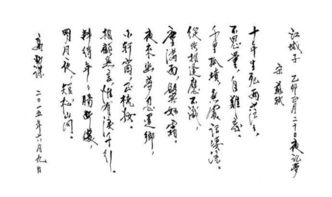 江城子 乙卯正月二十日夜記夢
宋 蘇軾
十年生死兩茫茫，
不思量，自難忘。
千里孤墳，無處話淒涼。
縱使相逢應不識，
塵滿面，鬢如霜。
夜來幽夢忽還鄉，
小軒窗，正梳妝。
相顧無言，惟有淚千行。
料得年年，腸斷處，
明月夜，短松岡。
年八月九日